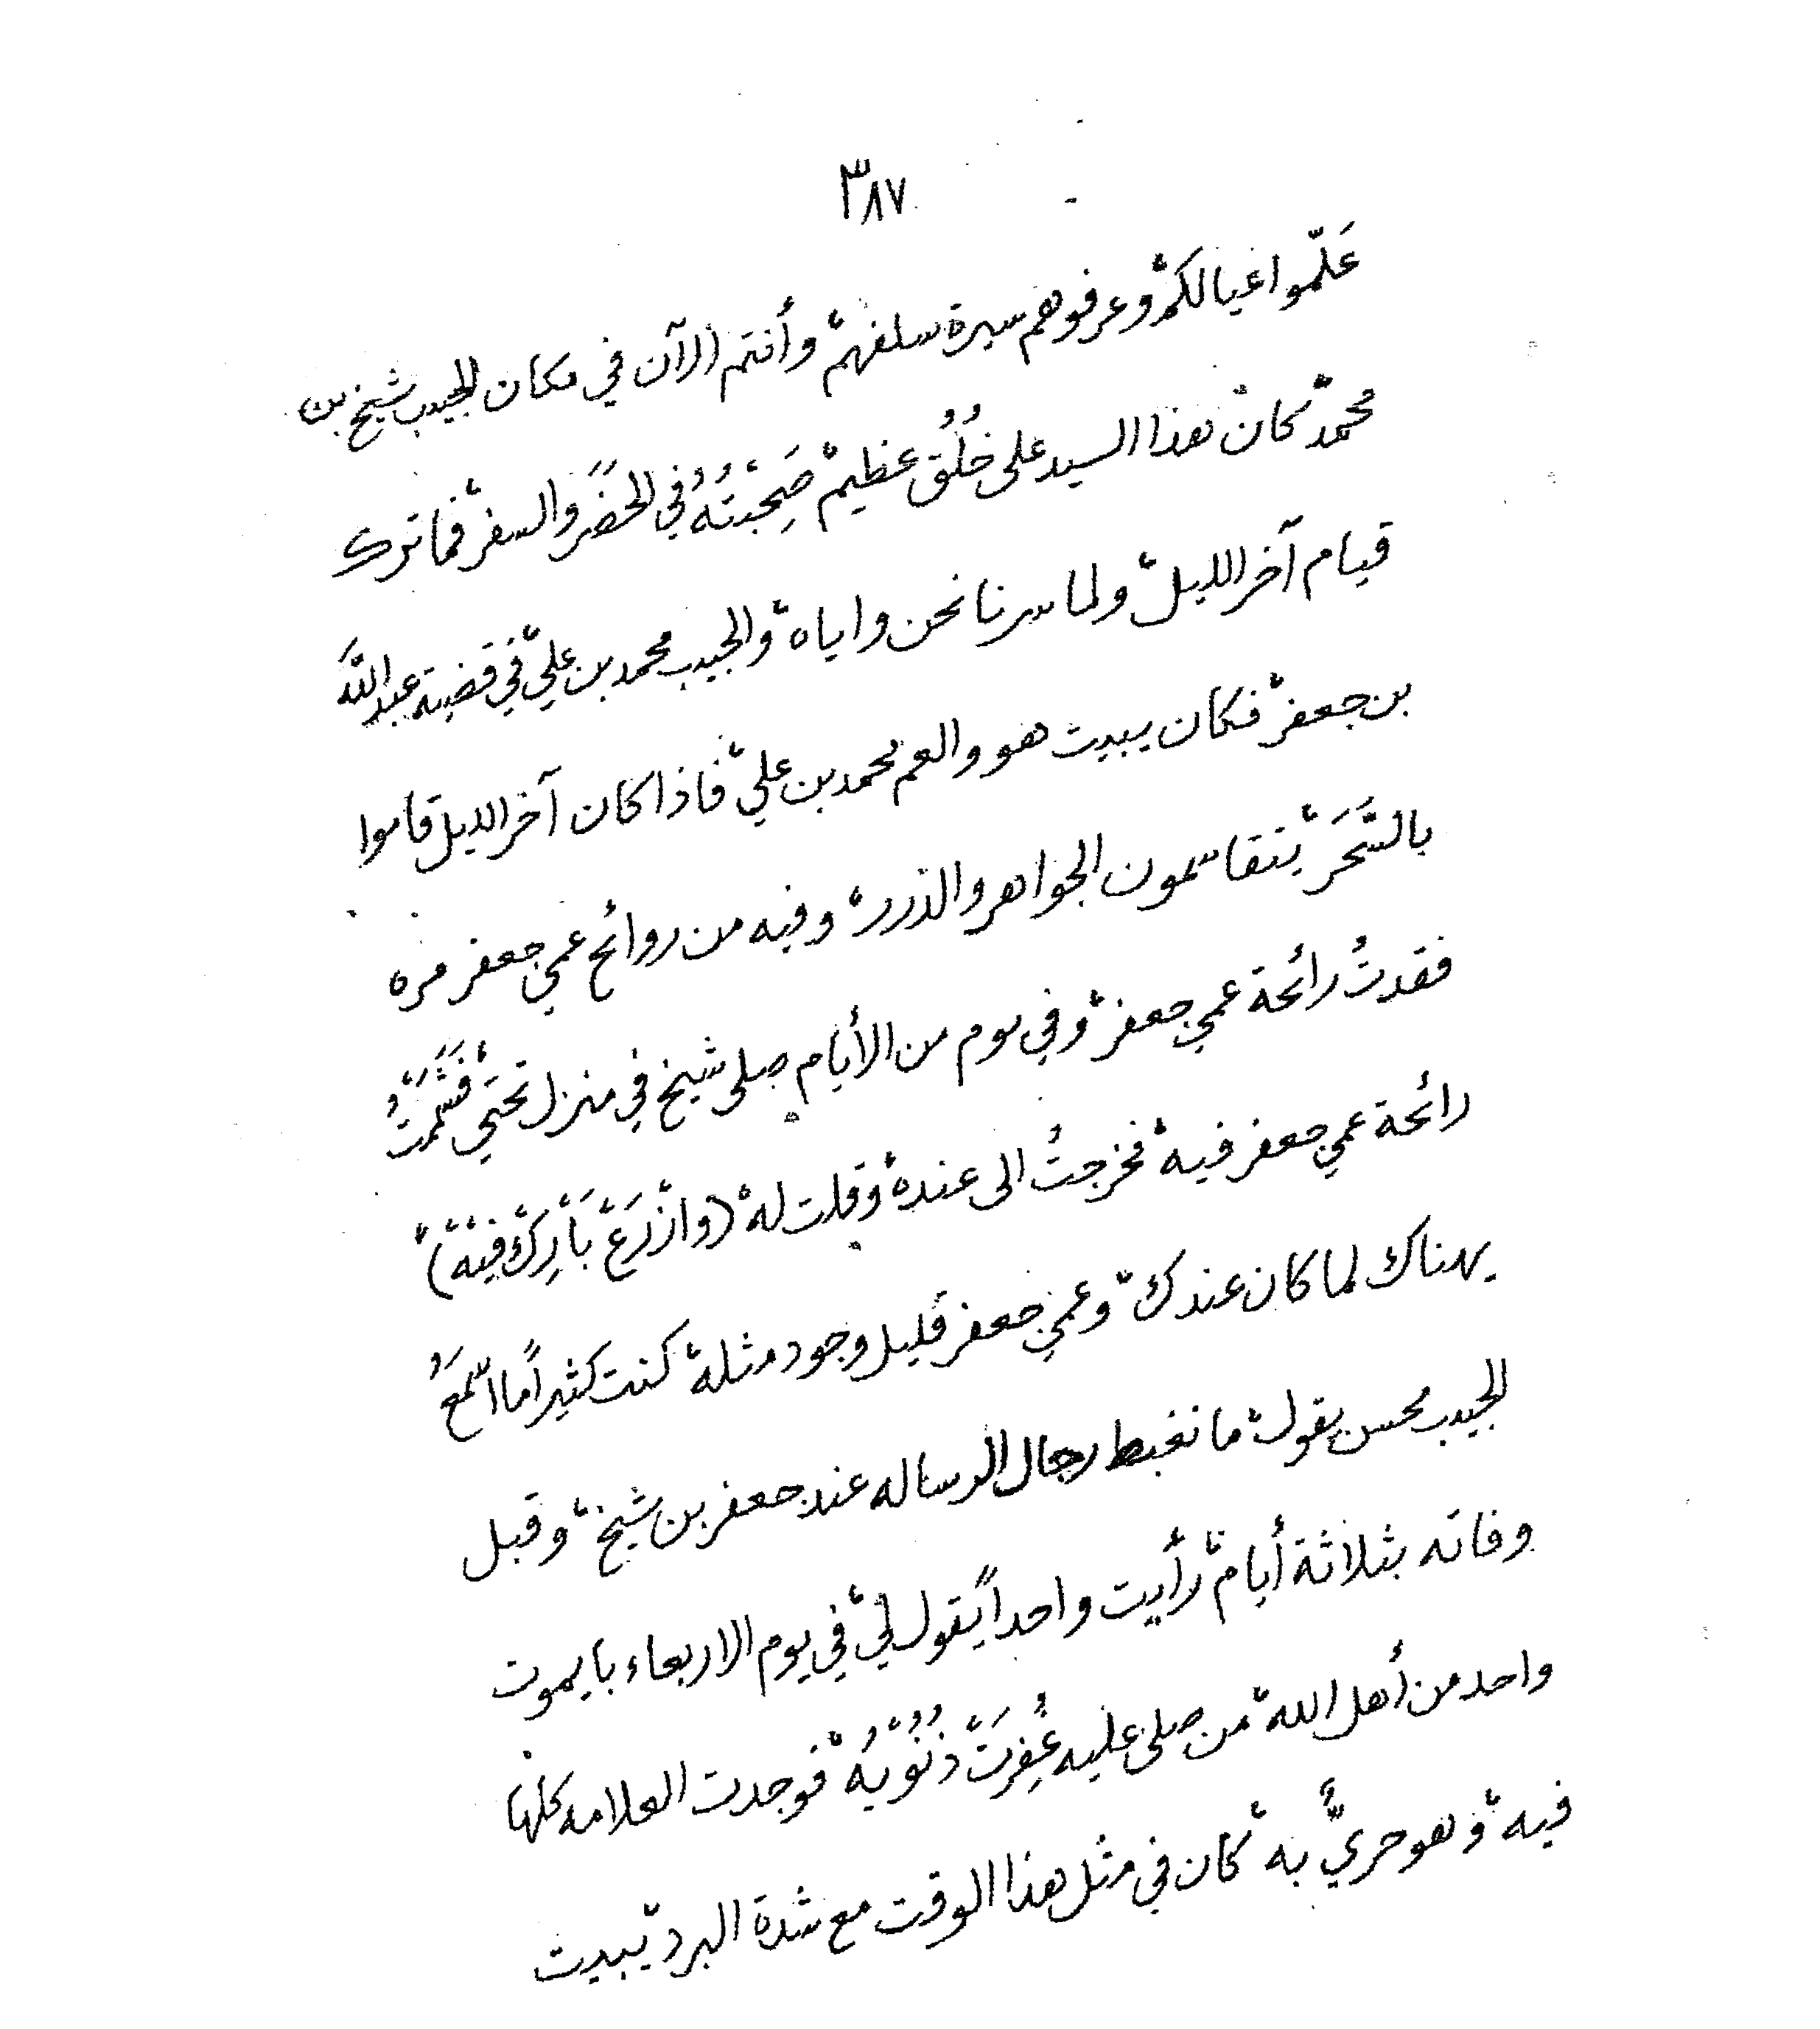 ٣٨٧
عَلّموا عيالكمْ وعرفوهم سيرة سلفهمْ وأنتم الآن في مكان الحبيب شيخ بن
محمدْ كانْ هذا السيد على خُلُق عظيمْ صَحِبْتُهُ في الحضَر والسفرْ فما ترك
قيام آخر الليلْ ولما سرنا نحن واياهْ والحبيب محمد بن عليْ في قضية عبد اللّه
بن جعفرْ فكان يبيت هو والعم محمد بن عليْ فاذا كان آخر الليل قاموا
بالسَّحَرْ يتقاسمون الجواهر والدررْ وفيه من روائح عمي جعفر مره
فقدتُ رائحة عمي جعفرْ وفي يوم من الأيام صلى شيخ في منزل تحتيْ فشَمَمْتُ
رائحة عمي جعفر فيهْ فخرجتُ الى عندهْ وقلت لهْ (وازْرَعْ بَارِكْ فِيْهْ)ْ
يهناك لما كان عندكْ وعمي جعفر قليل وجود مثلهْ كنت كثيراً ما اسْمَعُ
الحبيب محسن يقولْ ما نغبط رجال الرساله عند جعفر بن شيخْ وقبل
وفاته بثلاثة أيامْ رأيت واحداً يقول ليْ في يوم الاربعاء بايموت
واحد من أهل اللهْ من صلى عليه غُفِرَتْ ذُنُوْبُهْ فوجدت العلامه كلها
فيهْ وهو حريٌّ بهْ كان في مثل هذا الوقت مع شدة البردْ يبيت